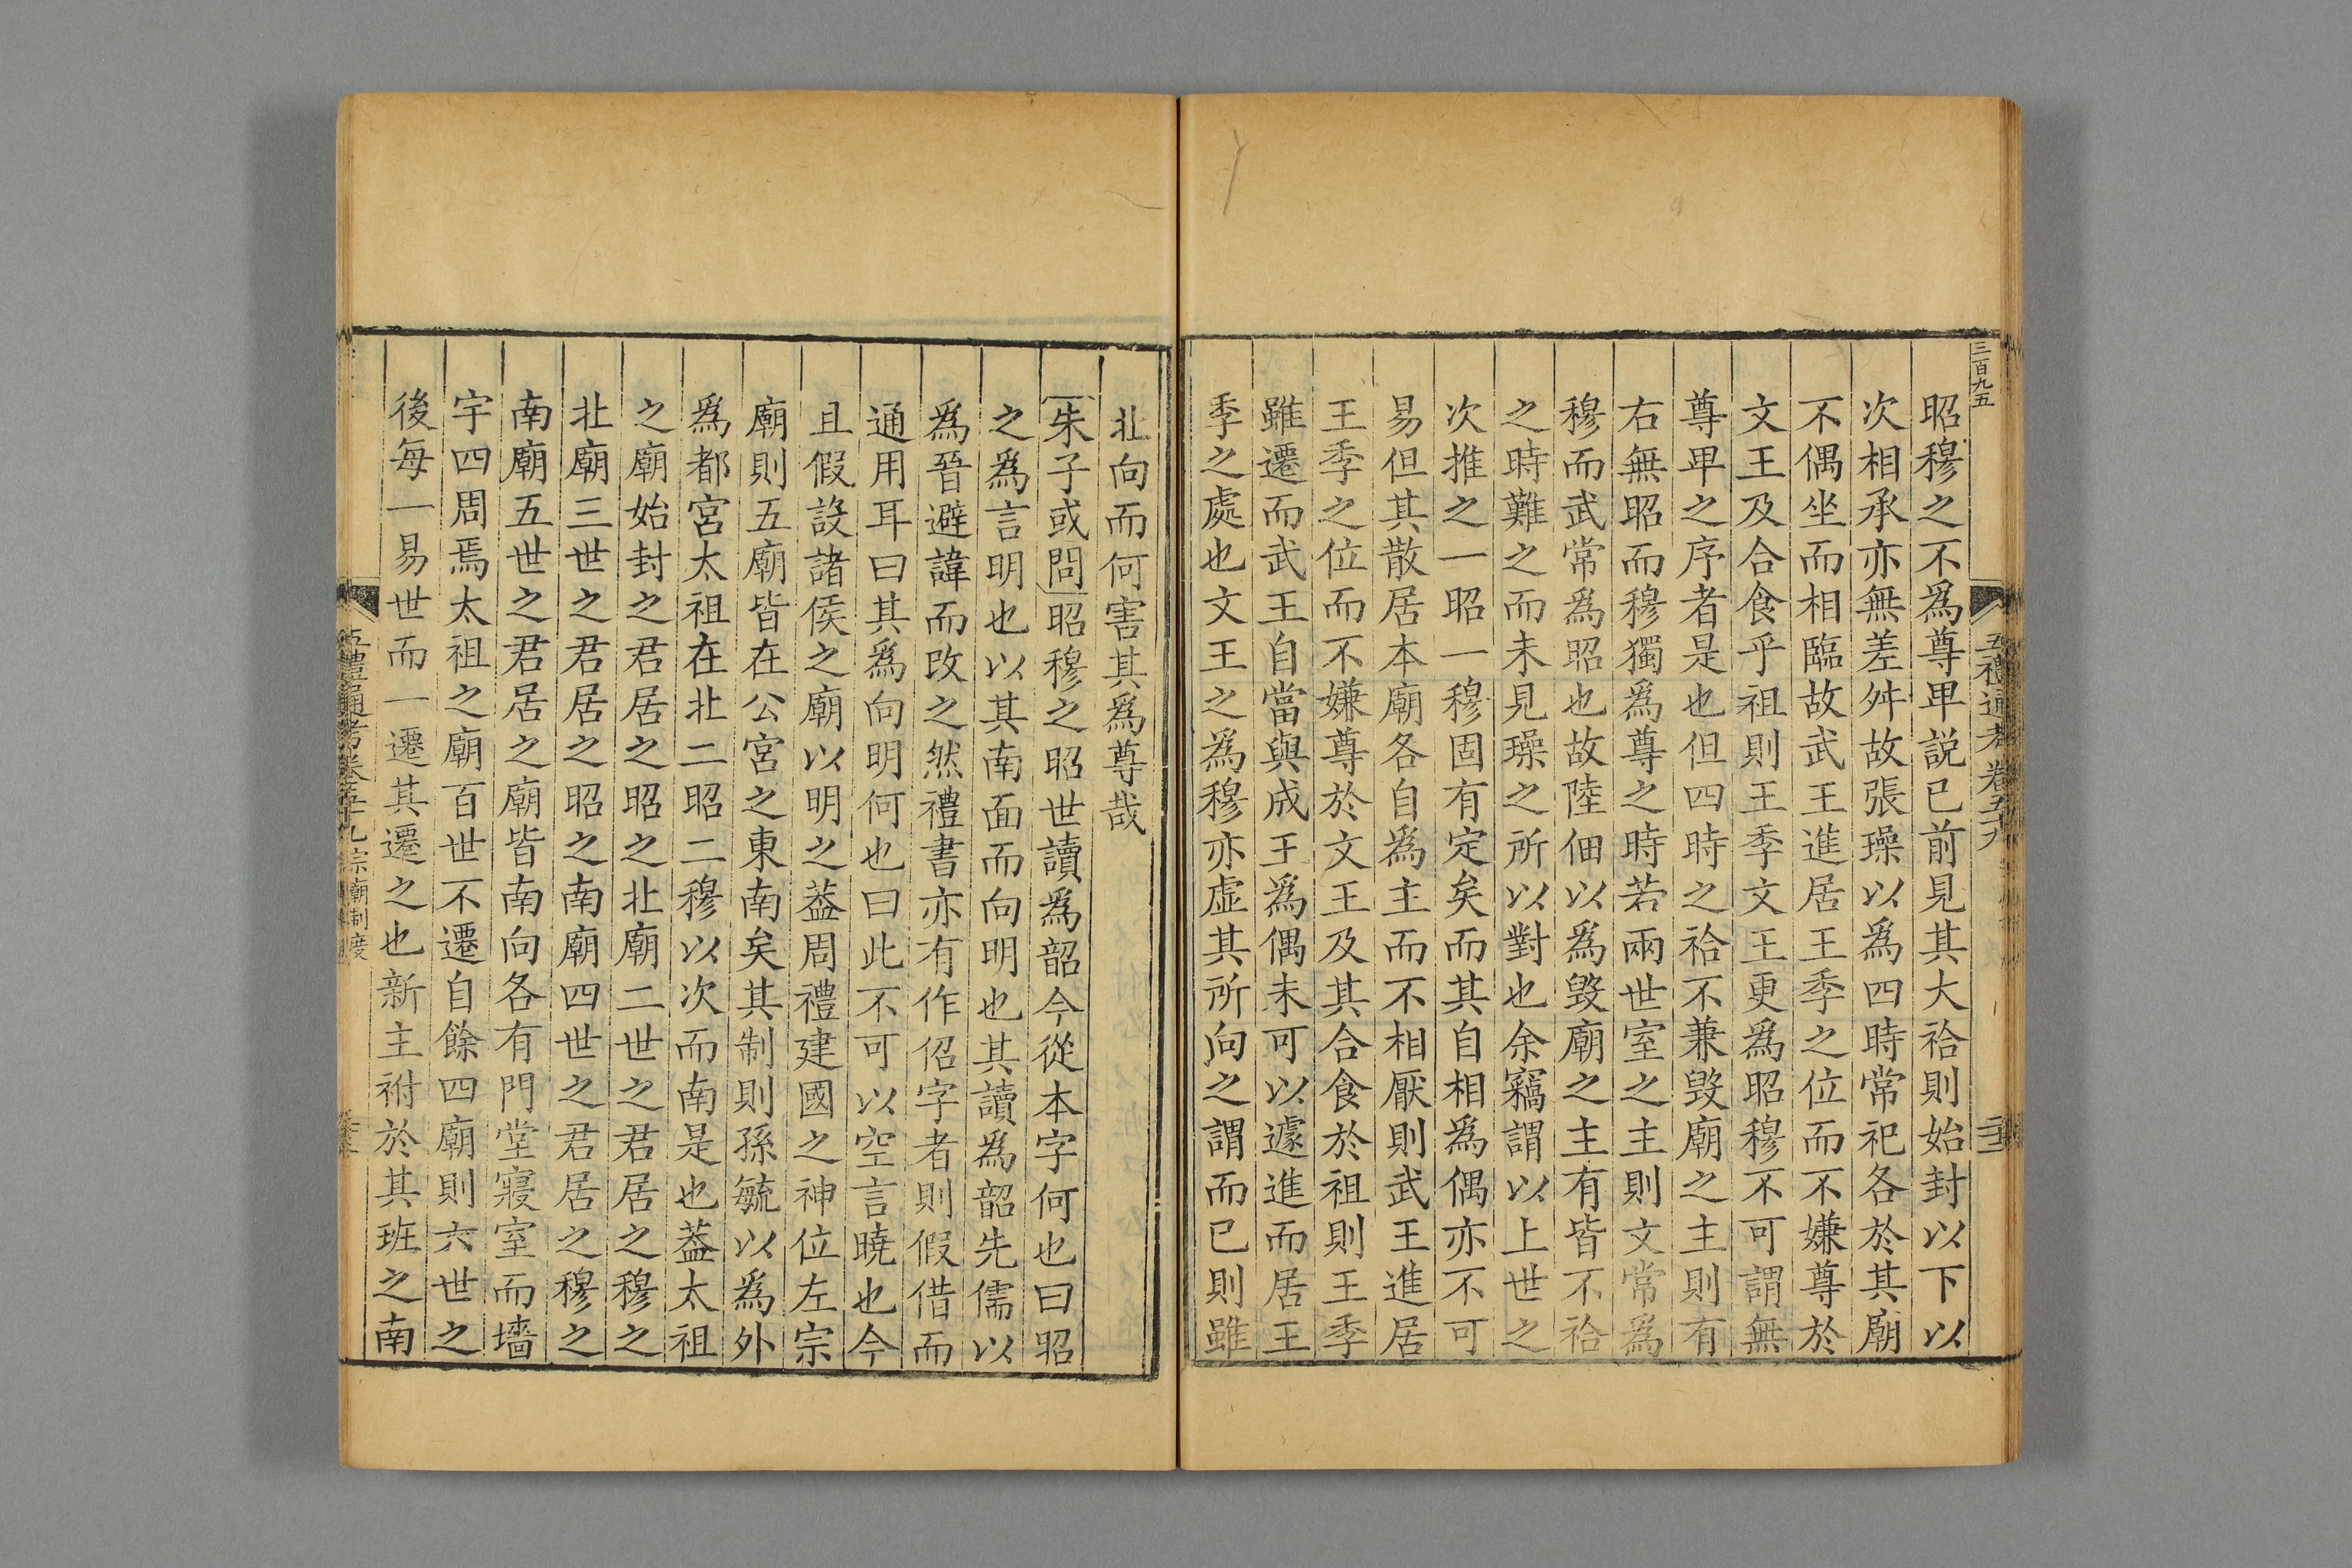 三百九五
五禮通考卷五十九
昭穆之不爲尊卑說已前見其大祫則始封以下以
次相承亦無差舛故張璪以爲四時常祀各於其廟
不偶坐而相臨故武王進居王季之位而不嫌尊於
文王及合食乎祖則王季文王更爲昭穆不可謂無
尊卑之序者是也但四時之祫不兼毀廟之主則有
右無昭而穆獨爲尊之時若兩世室之主則文常爲
穆而武常爲昭也故陸佃以爲毀廟之主有皆不祫
之時難之而未見璪之所以對也余竊謂以上世之
次推之一昭一穆固有定矣而其自相爲偶亦不可
易但其散居本廟各自爲主而不相厭則武王進居
王季之位而不嫌尊於文王及其合食於祖則王季
雖遷而武王自當與成王爲偶未可以遽進而居王
季之處也文王之爲穆亦虛其所向之謂而已則雖
北向而何害其爲尊哉
朱子或問昭穆之昭世讀爲韶今從本字何也曰昭
之爲言明也以其南面而向明也其讀爲韶先儒以
爲晉避諱而改之然禮書亦有作佋字者則假借而
通用耳曰其爲向明何也曰此不可以空言曉也今
且假設諸侯之廟以明之葢周禮建國之神位左宗
廟則五廟皆在公宮之東南矣其制則孫毓以爲外
爲都宮太祖在北二昭二穆以次而南是也葢太祖
之廟始封之君居之昭之北廟二世之君居之穆之
北廟三世之君居之昭之南廟四世之君居之穆之
南廟五世之君居之廟皆南向各有門堂寢室而墻
宇四周焉太祖之廟百世不遷自餘四廟則六世之
後每一易世而一遷其遷之也新主祔於其班之南
五禮通考卷五十九宗廟制度